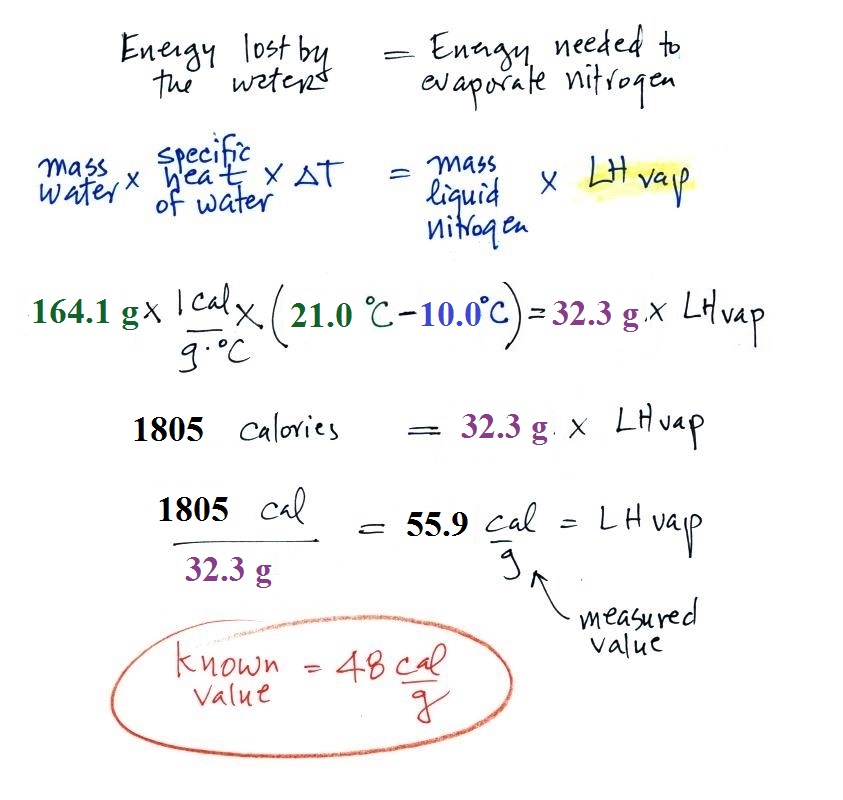 Energy lost by the water = Energy needed to evaporate nitrogen
mass water × specific heat of water × ΔT = mass liquid nitrogen × LH vap
164.1 g × 1 cal/g·°C × (21.0 °C - 10.0°C) = 32.3 g × LH vap
1805 calories = 32.3 g. × LH vap
1805 cal / 32.3 g = 55.9 cal/g = LH vap
measured value
known value = 48 cal/g